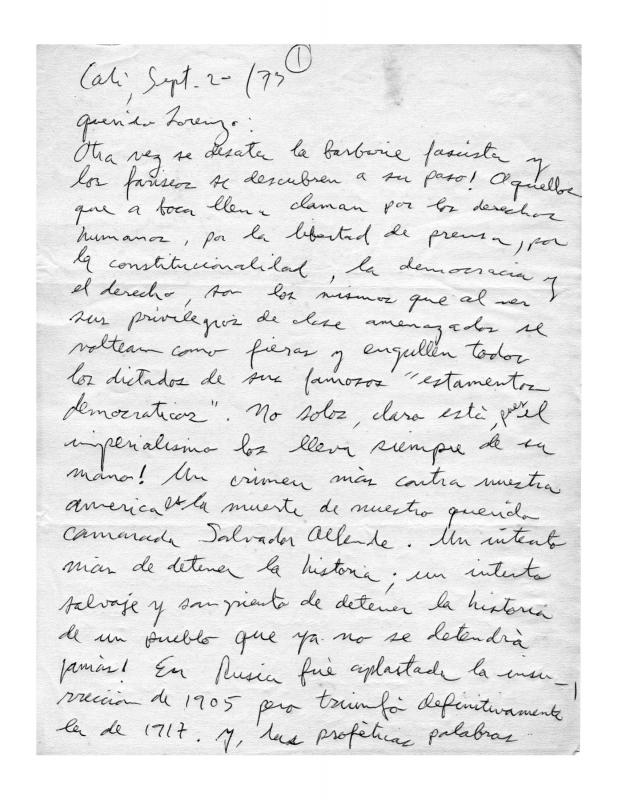 ①
Cali, Sept. 20/73
querido Lorenzo:
Otra vez se desata la barbarie fascista y
los fariseos se descubren a su paso! Aquellos
que a boca llena claman por los derechos
humanos, por la libertad de prensa, por
la constitucionalidad, la democracia y
el derecho, son los mismos que al ver
sus privilegios de clase amenazados se
voltean como fieras y engullen todos
los dictados de sus famosos "estamentos
democraticos". No solos, claro está, pues el
imperialismo los lleva siempre de su
mano! Un crimen más contra nuestra
america es la muerte de nuestro querido
camarada Salvador Allende. Un intento
más de detener la historia; un intento
salvaje y sangriento de detener la historia
de un pueblo que ya no se detendrá
jamás! En Rusia fué aplastada la insu-
rrección de 1905 pero triunfó definitivamente
la de 1917. y, las proféticas palabras